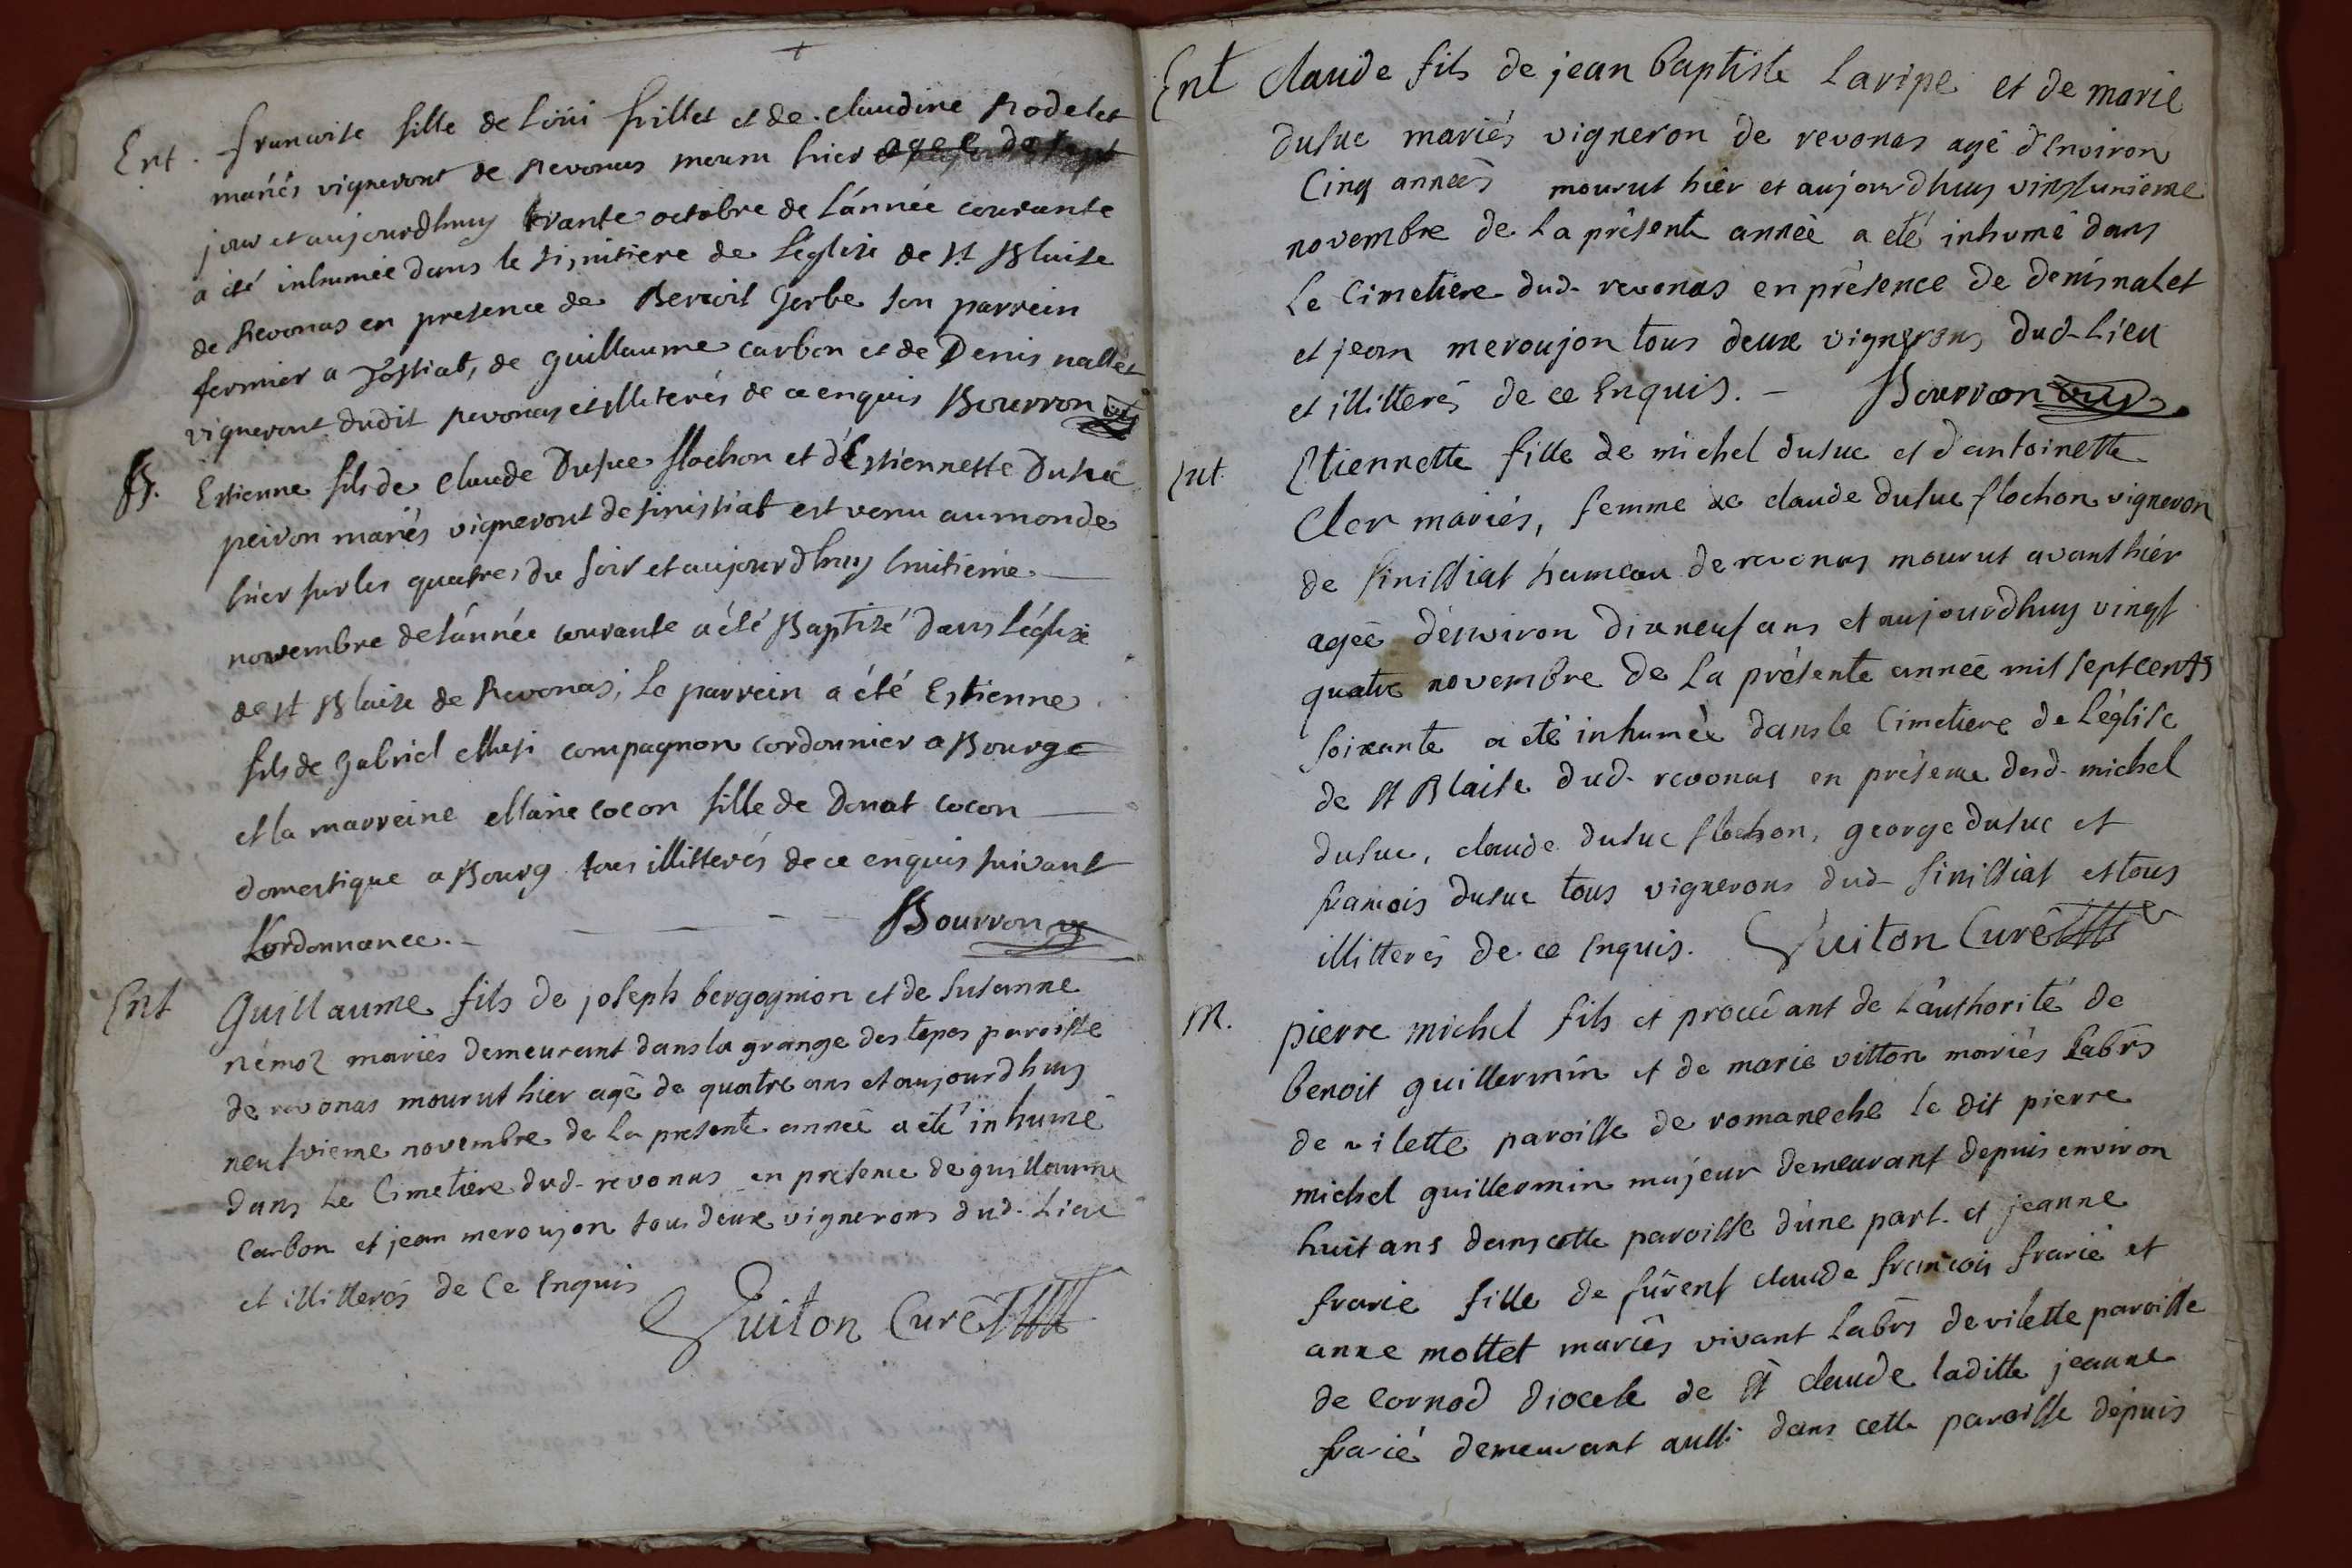 Ent. francoise fille de Loüi frillet et de claudine Rodelet
mariés vigneront de Revonas mouru hier agee de sept
jour et aujourdhuy trante octobre de l'année courante
a été inhumée dans le simitiere de l'eglise de st Blaise
de Revonas en presence de Benoit Gerbe son parrein
fermier a Jossiat, de guillaume carbon et de Denis nallet
vigneront dudit revonas et illiterés de ce enquis Bourron
B. Estienne fils de Claude Dusuc flochon et d'Estiennette Dusuc
peiron mariés vigneront de sinissiat est venu au monde
hier sur les quatres du soir et aujourdhuy huitieme
novembre de l'année courante a été Baptisé dans l'église
de st Blaise de Revonas; le parrein a été Estienne
fils de Gabriel compagnon cordonnier a Bourg
et la marreine Marie cocon fille de Donat cocon
domestique a Bourg tous illitterés de ce enquis suivant
l'ordonnance. - - - - Bourron
Ent Guillaume fils de joseph bergognion et de susanne
némoz mariés demeurant dans la grange des tepes paroisse
de revonas mourut hier agé de quatre ans et aujourdhuy
neufvieme novembre de la presente année a été inhumé
dans le Cimetiere dud- revonas en presence de guillaume
Carbon et jean meroujon tous deux vignerons dud- Lieu
et illitterés de Ce Enquis
Guiton Curé
Ent Claude fils de jean baptiste Laripe et de marie
dusuc mariés vigneron de revonas agé d'Environ
Cinq années mourut hier et aujourdhuy vingtunieme
novembre de La présente année a été inhumé dans
Le Cimetiere dud- revonas en présence de denis nalet
et jean meroujon tous deux vignerons dud-Lieu
et illitterés de ce Enquis. - Bourron
Ent. Etiennette fille de michel dusuc et d'antoinette
Cler mariés, femme de claude dusuc flochon vigneron
de sinissiat hameau de revonas mourut avant hier
agée d'environ dixneuf ans et aujourdhuy vingt
quatre novembre de La présente année mil septcents
soixante a été inhumée dans le Cimetiere de L'église
de st Blaise dud- revonas en présence desd- michel
dusuc, claude dusuc flochon, george dusuc et
francois dusuc tous vignerons dud- sinissiat et tous
illitterés de ce Enquis. Guiton Curé
M. pierre michel fils et procédant de L'authorité de
benoit guillermin et de marie vitton mariés Labrs
de vilette paroisse de romaneche le dit pierre
michel guillermin majeur demeurant depuis environ
huit ans dans cette paroisse d'une part. et jeanne
frarie fille de fûrent claude francois frarie et
anne mottet mariés vivant Labrs de vilette paroisse
de Cornod diocese de st claude laditte jeanne
frarié demeurant aussi dans cette paroisse depuis